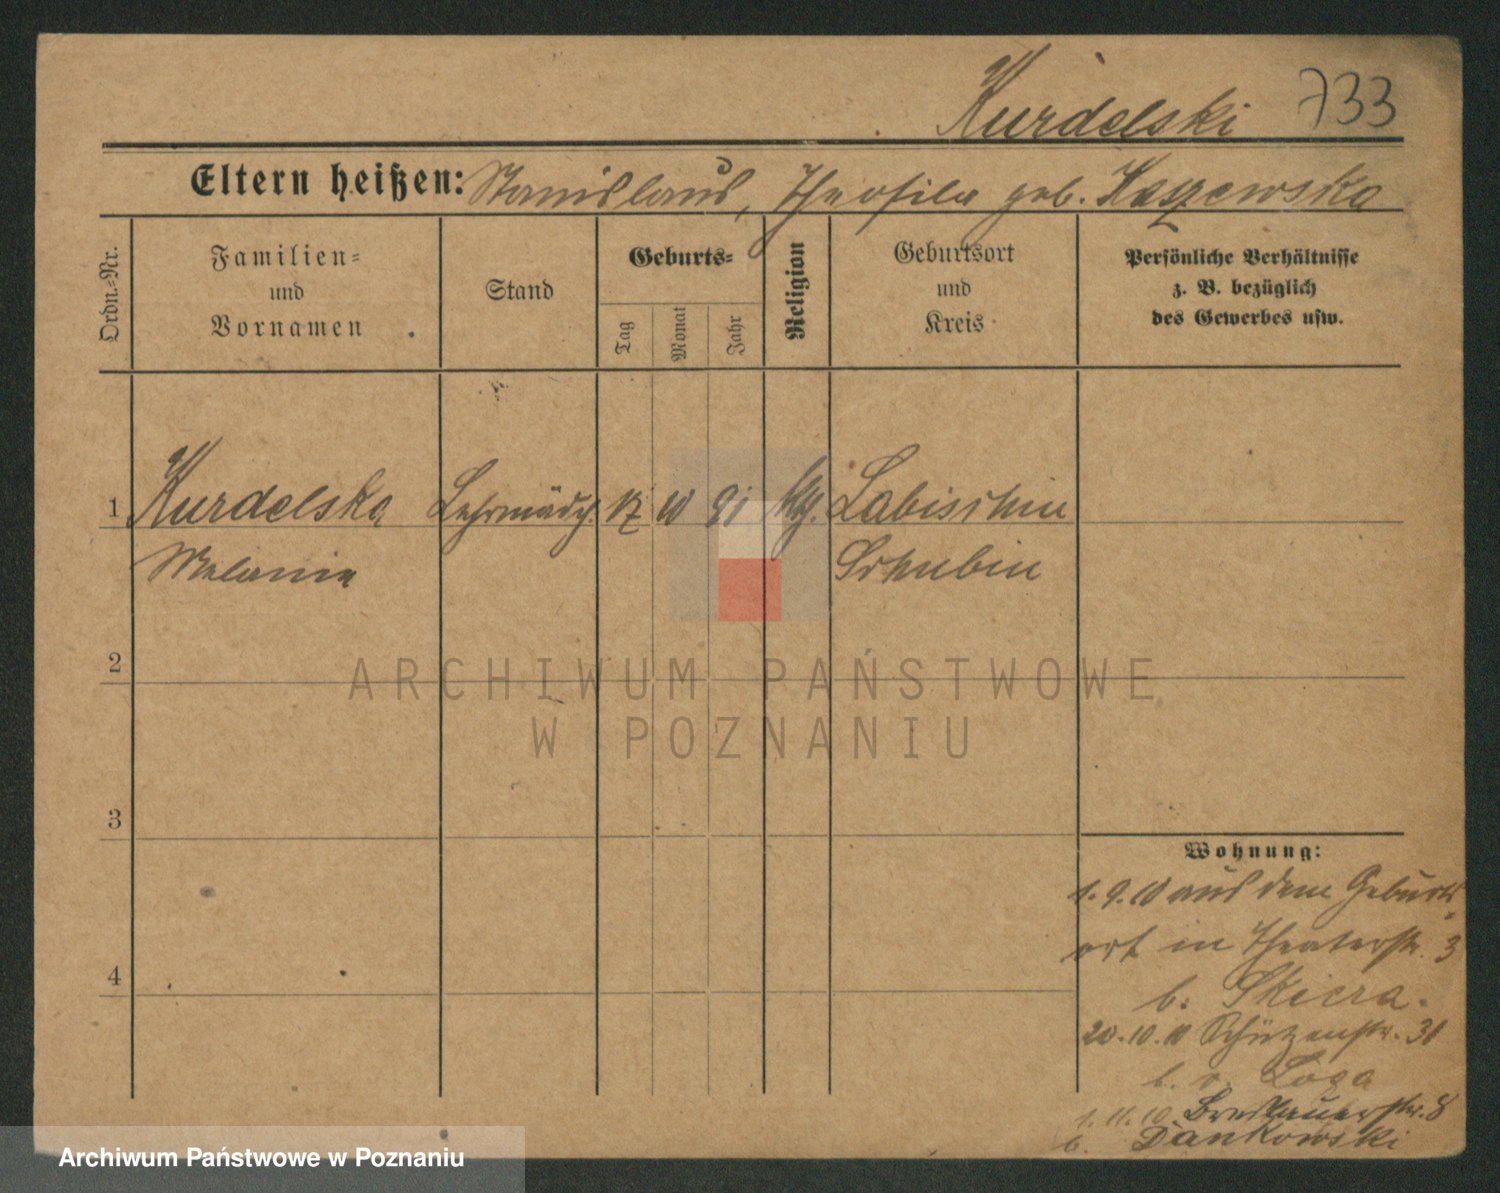 Kurdelski 733
Eltern heißen: Stanislaus, Theofila geb. Kaszewska
Ordn.-Nr.
Familien-
und
Vornamen
Stand
Geburts-
Tag
Monat
Jahr
Religion
Geburtsort
und
Kreis
Persönliche Verhältnisse
z. B. bezüglich
des Gewerbes usw.
1 Kurdelska Lehrmädch. 17 10 91 Labischin
Melanie Schubin
2
3
4
Wohnung:
1.9.10 aus dem Geburts-
ort in Theaterstr. 3
b. Skiera.
20.10.10 Schützenstr. 31
b. v. Loga
1.11.10 Breslauerstr. 8
b. Dankowski
ARCHIWUM PAŃSTWOWE
W POZNANIU
Archiwum Państwowe w Poznaniu